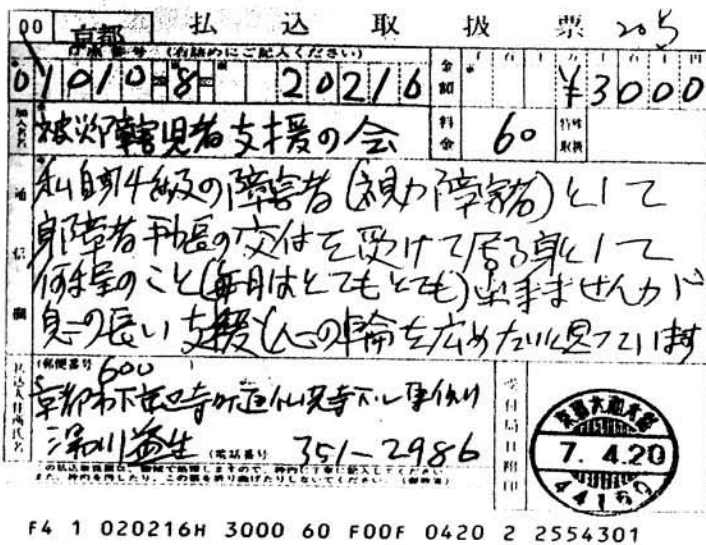 00 京都 払込取扱票
口座番号 (右詰めにご記入ください)
01010 8 20216
金額 ¥3000
加入者名 被災障害児者支援の会
料金 60 特殊取扱
通信欄
私自身4級の障害者(視力障害者)として
身障者手帳の交付を受けて居る身として
何程のこと(毎月はとてもとても)出来ませんが
息の長い支援と心の輪を広めたいと思っています
(郵便番号 600 )
京都市下京区寺町通仏光寺
(電話番号 351-2986
払込人住所氏名
受付局日附印
7. 4.20
F4 1 020216H 3000 60 F00F 0420 2 2554301